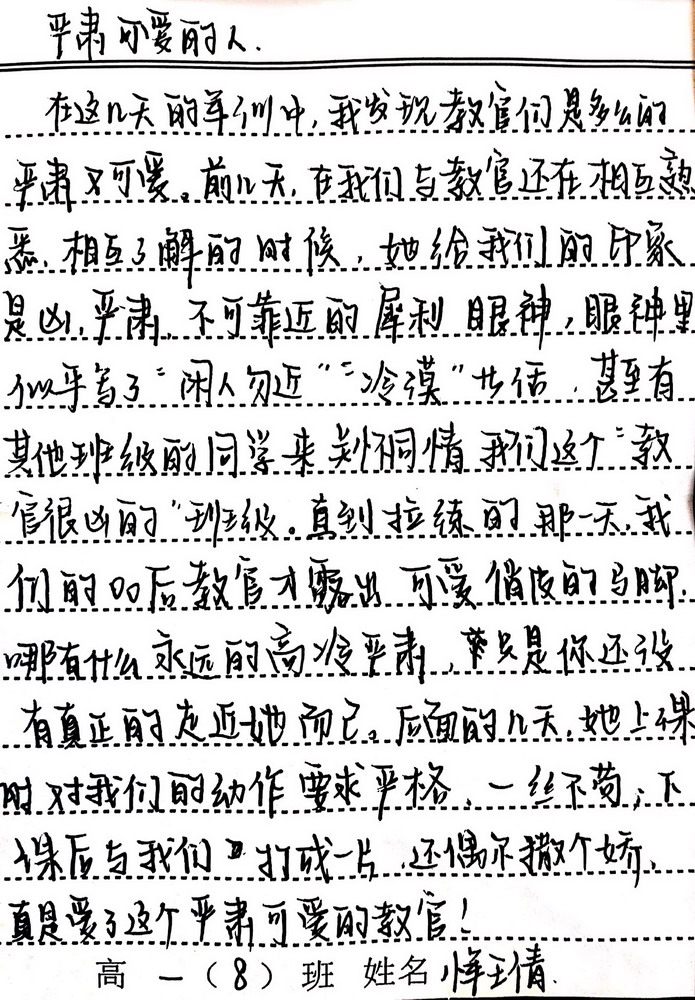 严肃可爱的人.
在这几天的军训中,我发现教官们是多么的
严肃又可爱。前几天,在我们与教官还在相互熟
悉,相互了解的时候,她给我们的印象
是凶,严肃,不可靠近的犀利眼神,眼神里
似乎写了“闲人勿近”“冷漠”廿话,甚至有
其他班级的同学来关怀同情我们这个“教
官很凶的”班级。直到拉练的那一天,我
们的00后教官才露出可爱俏皮的马脚.
哪有什么永远的高冷严肃,只是你还没
有真正的走近她而已。后面的几天,她上课
时对我们的动作要求严格,一丝不苟;下
课后与我们打成一片,还偶尔撒个娇,
真是爱了这个严肃可爱的教官!
高一(8)班 姓名 恽王倩.